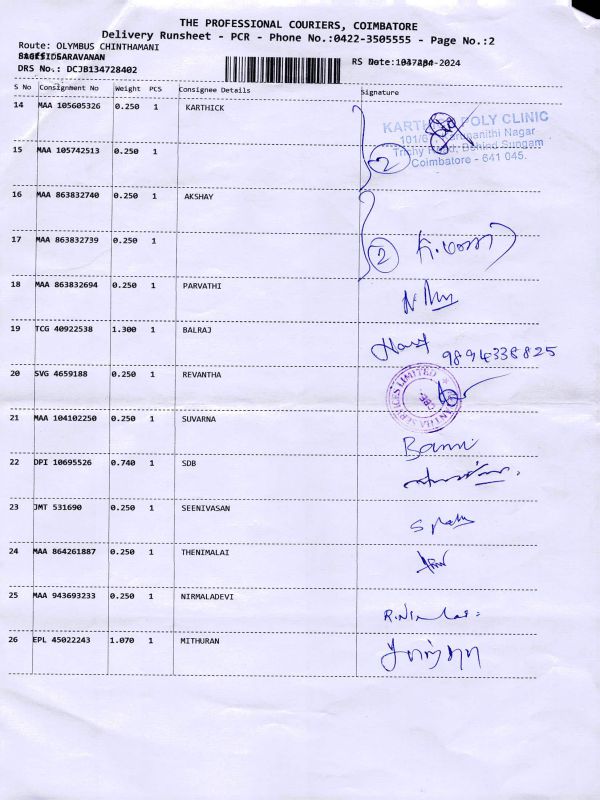 THE PROFESSIONAL COURIERS, COIMBATORE
Delivery Runsheet - PCR - Phone No.:0422-3505555 - Page No.:2
Route: OLYMBUS CHINTHAMANI
SARAVANAN
DRS No.: DCJB134728402
RS No.: Date: -2024
S No Consignment No Weight PCS Consignee Details Signature
14 MAA 105605326 0.250 1 KARTHICK
KARTH POLY CLINIC
101/6 Nagar
Trichy Road, Behind Sungam
Coimbatore - 641 045.
15 MAA 105742513 0.250 1
2
16 MAA 863832740 0.250 1 AKSHAY
17 MAA 863832739 0.250 1
2
18 MAA 863832694 0.250 1 PARVATHI
19 TCG 40922538 1.300 1 BALRAJ
9894338825
20 SVG 4659188 0.250 1 REVANTHA
SERVICES LIMITED
CBE
21 MAA 104102250 0.250 1 SUVARNA
22 DPI 10695526 0.740 1 SDB
23 JMT 531690 0.250 1 SEENIVASAN
24 MAA 864261887 0.250 1 THENIMALAI
25 MAA 943693233 0.250 1 NIRMALADEVI
26 EPL 45022243 1.070 1 MITHURAN